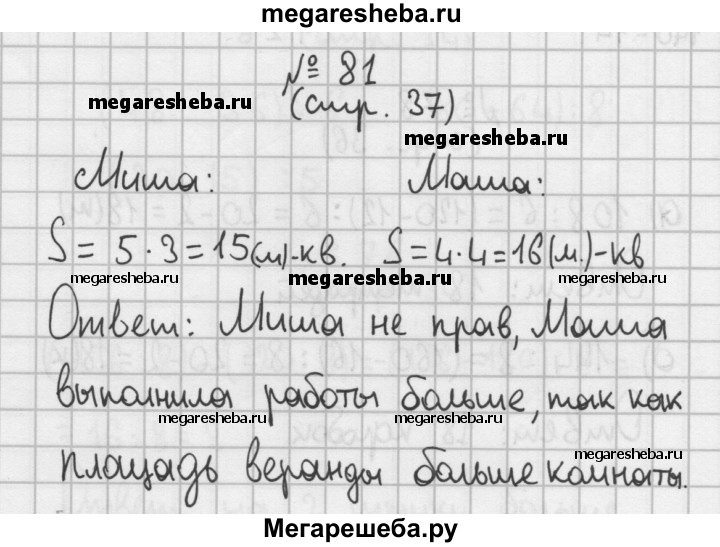 megaresheba.ru
№ 81
megaresheba.ru
(стр. 37)
megaresheba.ru
Миша: Маша:
S = 5 · 3 = 15(м)-кв. S = 4 · 4 = 16(м.)-кв
megaresheba.ru megaresheba.ru megaresheba.ru
Ответ: Миша не прав, Маша
выполнила работы больше, так как
megaresheba.ru megaresheba.ru megaresheba.ru
площадь веранды больше комнаты.
Мегарешеба.ру